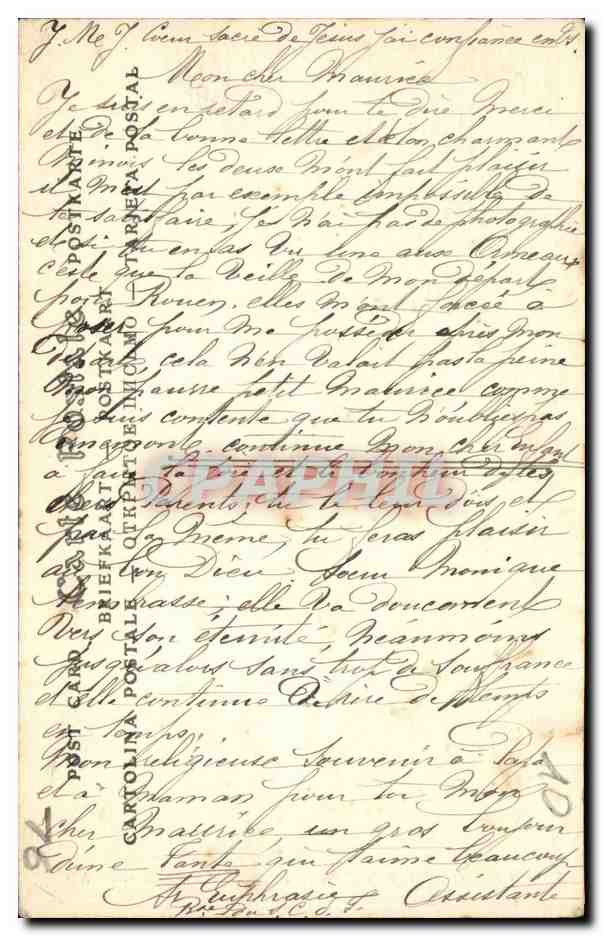 J. M. J. Coeur sacré de Jésus j'ai confiance en Vs.
Mon cher Maurice
Je suis en retard pour te dire merci
et de ta bonne lettre et ton charmant
minois les deux m'ont fait plaisir
il m'est par exemple impossible de
te satisfaire, je n'ai pas de photographie
et si tu en as vu une aux Ormeaux
c'est que la veille de mon départ
pour Rouen, elles m'ont forcée à
poser pour me posséder après mon
départ, cela n'en valait pas la peine
mon pauvre petit Maurice comme
je suis contente que tu n'oublies pas
continue mon cher enfant
à faire la joie et le bonheur de tes
chers Parents, tu le leur dois et
par là même, tu feras plaisir
au bon Dieu. Soeur Monique
t'embrasse; elle va doucement
vers son éternité, néanmoins
jusqu'alors sans trop de souffrance
et elle continue de rire de temps
en temps.
Mon religieux souvenir à Papa
et à Maman pour toi mon
cher Maurice un gros bonjour
d'une Tante qui t'aime beaucoup
Sr Euphrasie Assistante
POST CARD — Carte Postale — POSTKARTE
BRIEFKAART — POSTKAART
CARTOLINA POSTALE — — TARJETA POSTAL
DELCAMPE